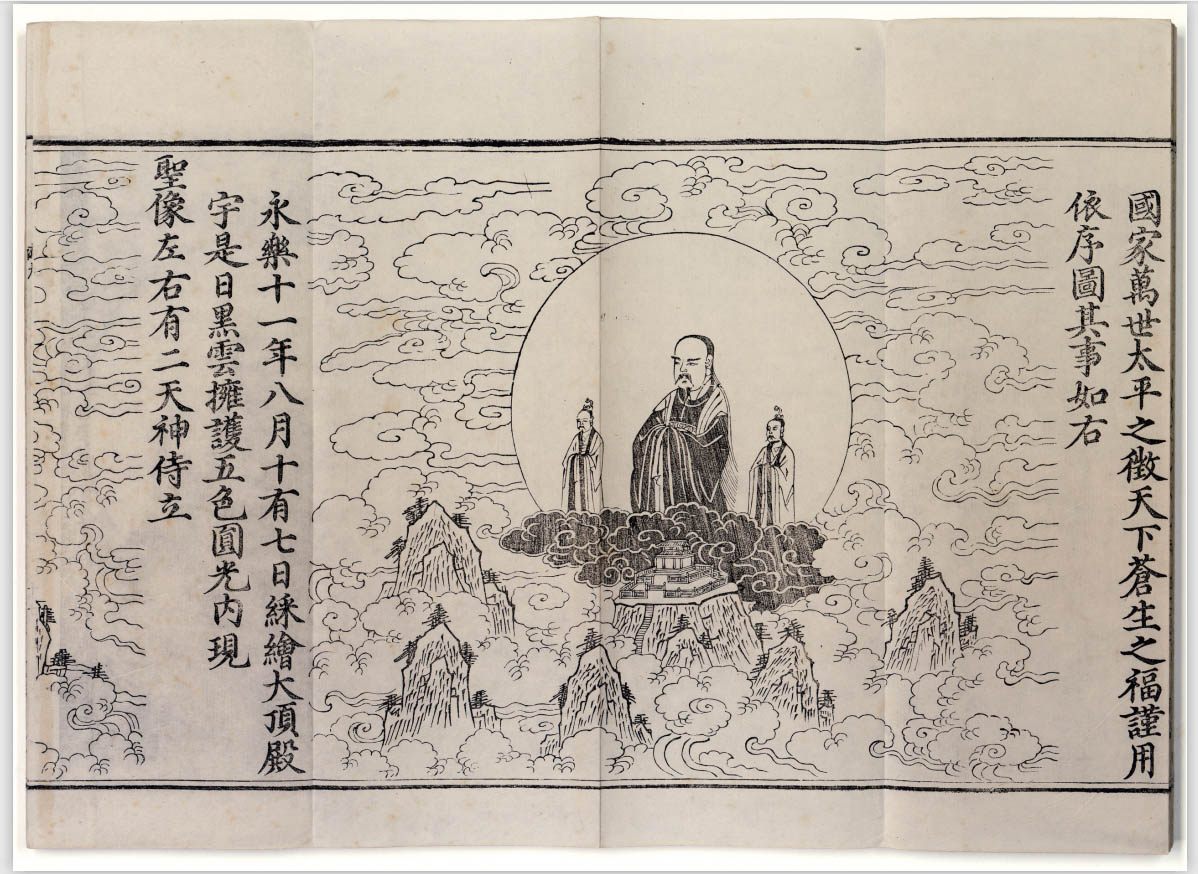 國家萬世太平之徵天下蒼生之福謹用
依序圖其事如右
永樂十一年八月十有七日綵繪大頂殿
宇是日黑雲擁護五色圓光內現
聖像左右有二天神侍立